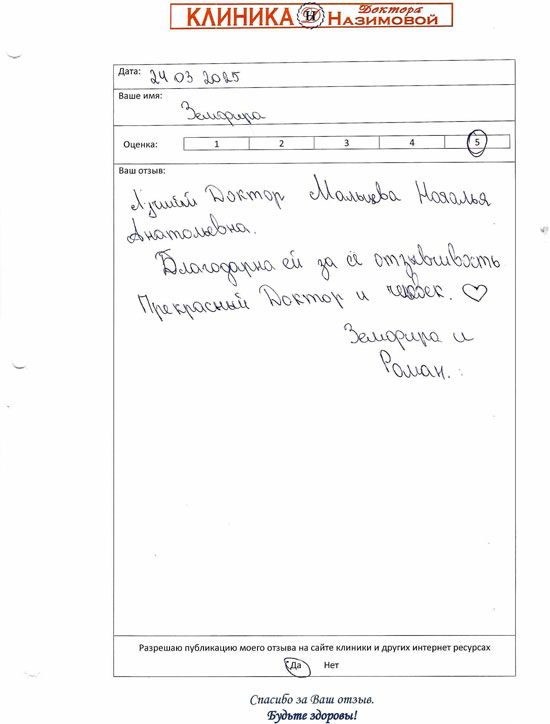 КЛИНИКА Н Доктора НАЗИМОВОЙ
Дата: 24 03 2025
Ваше имя:
Земфира
Оценка: 1 2 3 4 5
Ваш отзыв:
Лучший Доктор Мальцева Наталья
Анатольевна.
Благодарна ей за её отзывчивость
Прекрасный Доктор и человек. ♡
Земфира и
Роман.
Разрешаю публикацию моего отзыва на сайте клиники и других интернет ресурсах
Да Нет
Спасибо за Ваш отзыв.
Будьте здоровы!